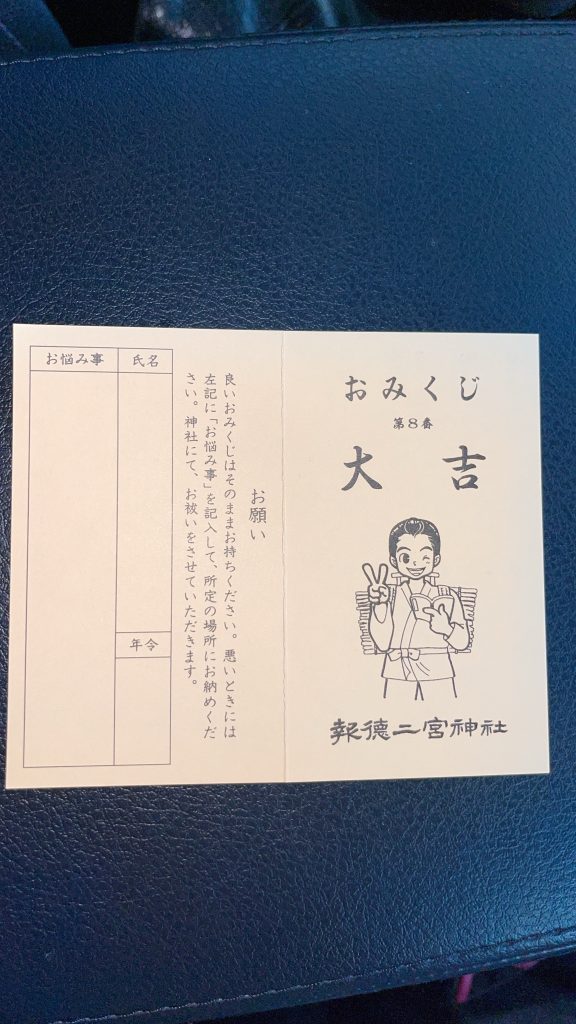 おみくじ
第8番
大吉
報徳二宮神社
お願い
良いおみくじはそのままお持ちください。悪いときには
左記に「お悩み事」を記入して、所定の場所にお納めくだ
さい。神社にて、お祓いをさせていただきます。
氏名
年令
お悩み事